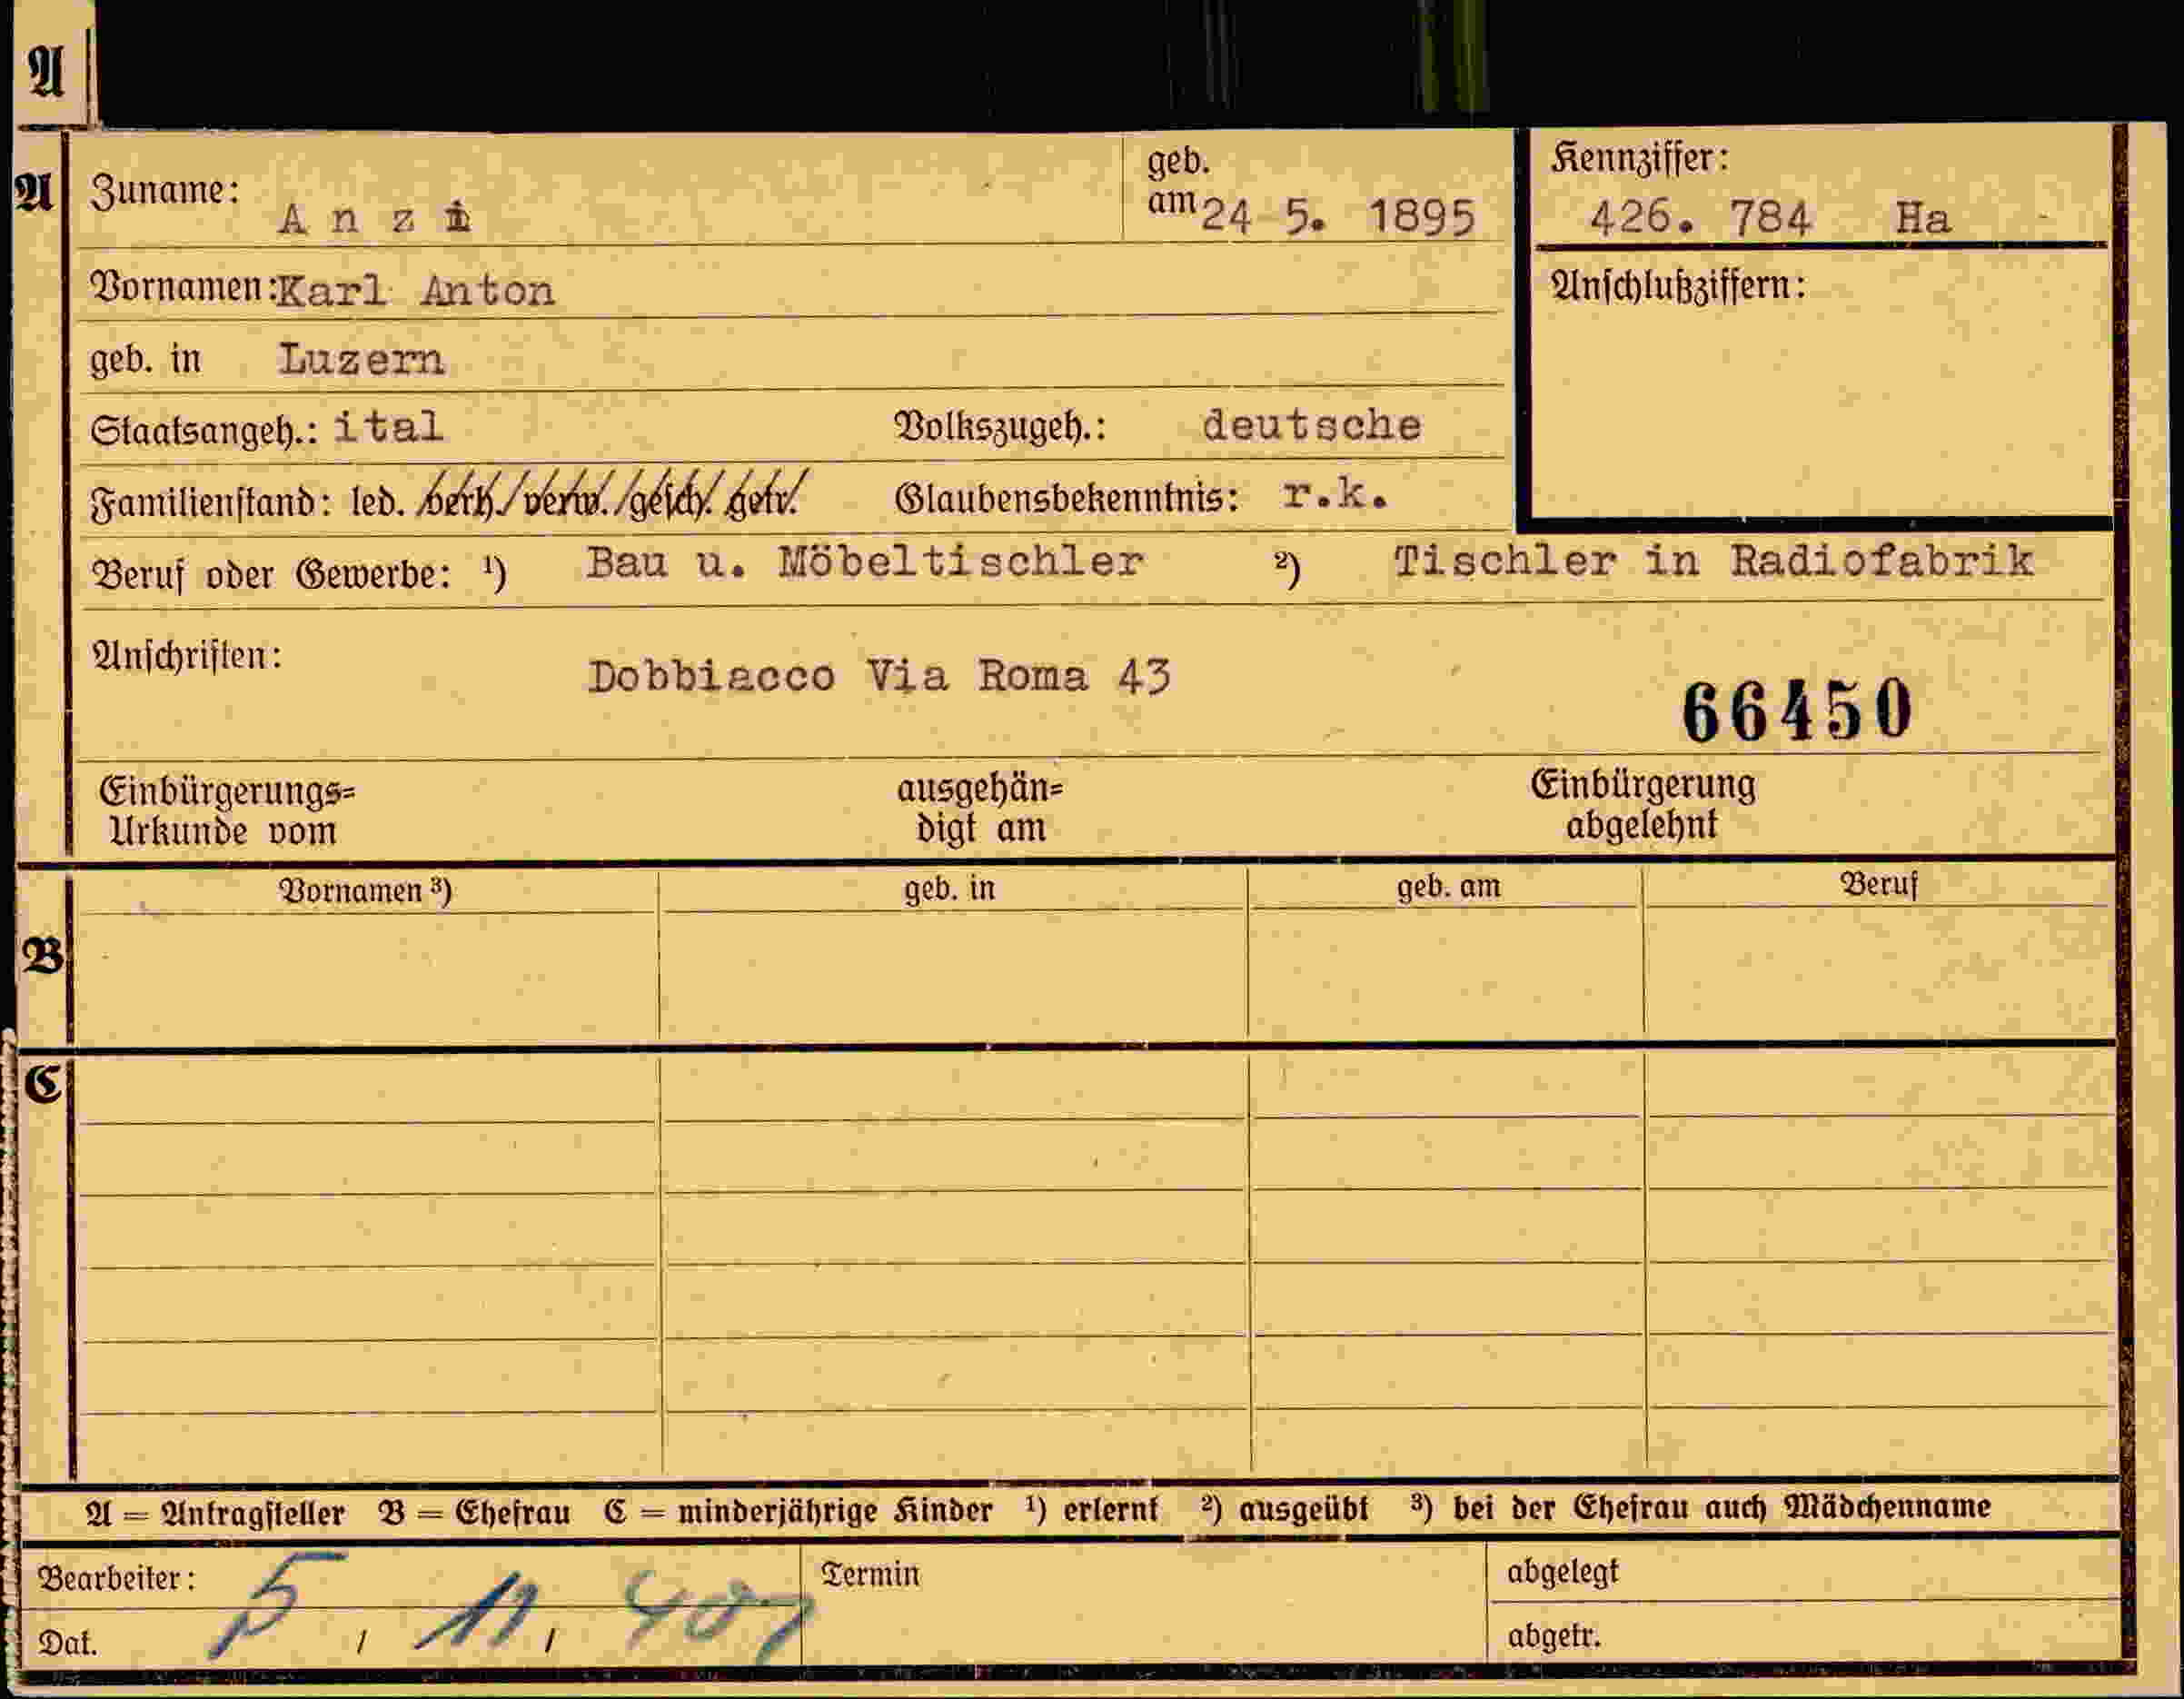 A
A
Zuname: Anzi geb. am 24 5. 1895 Kennziffer: 426. 784 Ha
Vornamen: Karl Anton Anschlußziffern:
geb. in Luzern
Staatsangeh.: ital Volkszugeh.: deutsche
Familienstand: led. /verh./verw./gesch. getr. Glaubensbekenntnis: r.k.
Beruf oder Gewerbe: ¹) Bau u. Möbeltischler ²) Tischler in Radiofabrik
Anschriften: Dobbiacco Via Roma 43
66450
Einbürgerungs= ausgehän= Einbürgerung
Urkunde vom digt am abgelehnt
Vornamen ³) geb. in geb. am Beruf
B
C
A = Antragsteller B = Ehefrau C = minderjährige Kinder ¹) erlernt ²) ausgeübt ³) bei der Ehefrau auch Mädchenname
Bearbeiter: Termin abgelegt
Dat. 5, 11, abgetr.